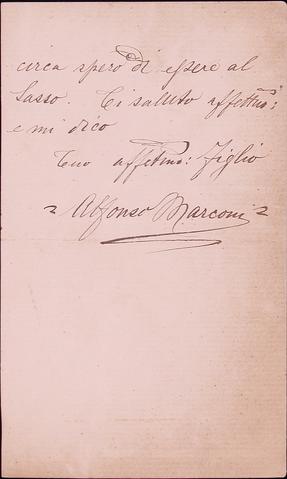 circa spero di essere al
Sasso. Ti saluto affettmo:
e mi dico
Tuo affetmo: figlio
Alfonso Marconi